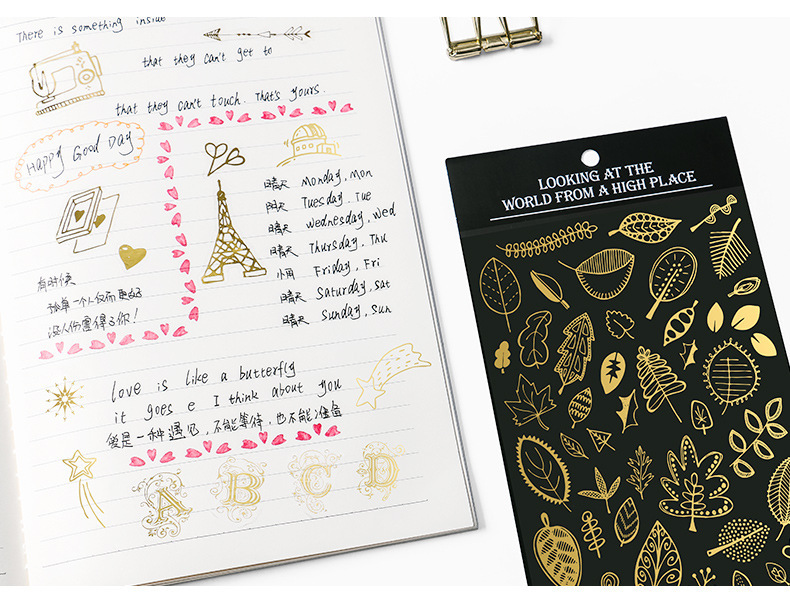 There is something inside
that they can't get to
that they can't touch. That's yours.
Happy Good Day
晴天 Monday, Mon
阴天 Tuesday, Tue
晴天 Wednesday, Wed
晴天 Thursday, Thu
小雨 Friday, Fri
晴天 Saturday, Sat
晴天 Sunday, Sun
有时候
孤单一个人反而更好
没人伤害得了你！
love is like a butterfly
it goes e I think about you
爱是一种遇见，不能等待，也不能准备
A B C D
LOOKING AT THE
WORLD FROM A HIGH PLACE